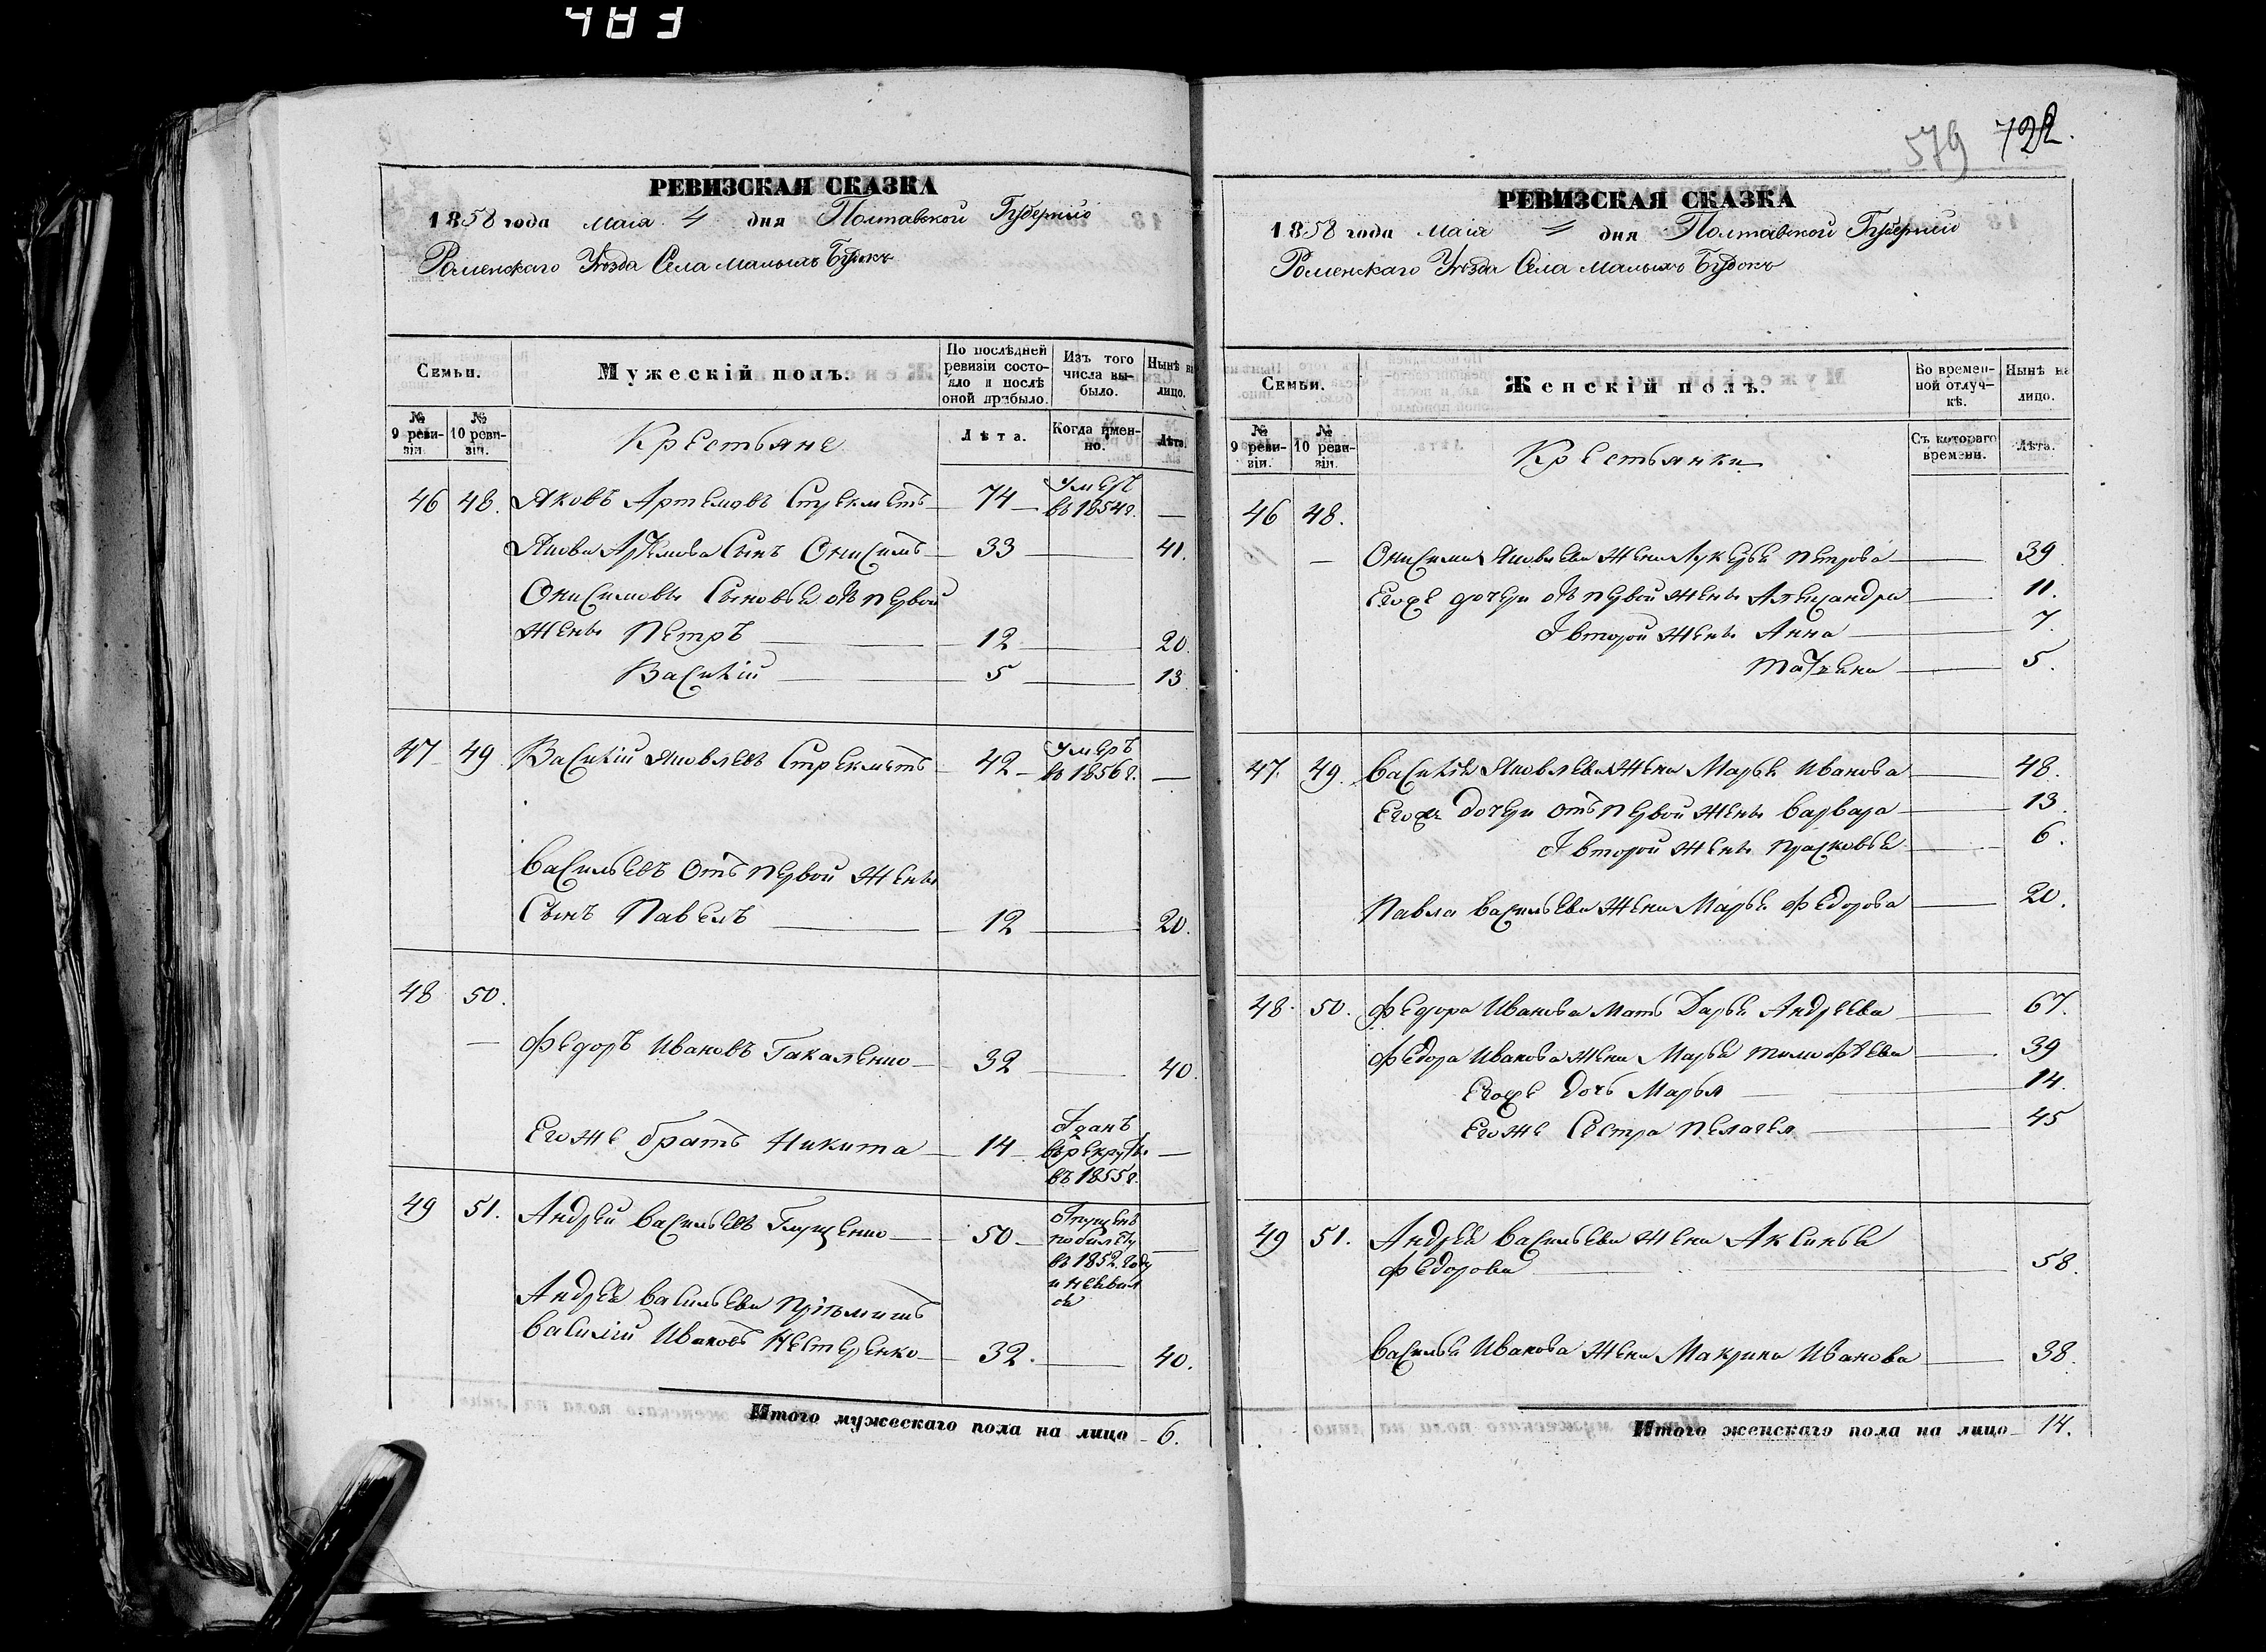 483
РЕВИЗСКАЯ СКАЗКА
1858 года Маія 4 дня Полтавской Губерніи
Роменскаго Уѣзда Села Малыхъ Будокъ
Семьи.
Мужескій полъ.
По послѣдней ревизіи состояло и послѣ оной прибыло.
Изъ того числа выбыло.
Нынѣ на лицо.
№ 9 ревизіи.
№ 10 ревизіи.
Крестьяне
Лѣта.
Когда именно.
Лѣта.
46 48. Яковъ Артемовъ 74 умеръ въ 1854 г. —
Якова Артемова Сынъ Онисимъ 33 — 41.
Онисимовы Сыновья отъ первой
жены Петръ 12 — 20.
Василій 5 — 13
47 49 Василій Яковлевъ 42 умеръ въ 1856 г. —
Васильевъ отъ первой жены
Сынъ Павелъ 12 — 20.
48 50.
— Федоръ Ивановъ Гакаленко 32 — 40.
Егоже братъ Никита 14 Сданъ
въ рекруты —
въ 1855 г.
49 51. Андрей Васильевъ 50 Отпущенъ
по билету —
въ 1852 году
и неявил
ся
Андрея Васильева пріёмышъ
Василій Ивановъ Нестеренко 32. — 40.
Итого мужескаго пола на лицо 6.
579 722.
РЕВИЗСКАЯ СКАЗКА
1858 года Маія 4 дня Полтавской Губерніи
Роменскаго Уѣзда Села Малыхъ Будокъ
Семьи.
Женскій полъ.
Во временной отлучкѣ.
Нынѣ на лицо.
№ 9 ревизіи.
№ 10 ревизіи.
Крестьянки
Съ котораго времени.
Лѣта.
46 48.
— Онисима Яковлева жена Лукерья Петрова — 39
Егоже дочери отъ первой жены Александра — 11.
С второй жены Анна — 7.
Татьяна — 5.
47. 49. Василія Яковлева жена Марья Иванова — 48.
Егоже дочери отъ первой жены Варвара — 13.
С второй жены Прасковья — 6.
Павла Васильева жена Марья Федорова — 20.
48. 50. Федора Иванова мать Дарья Андреева — 67.
Федора Иванова жена Марья Тимофѣева — 39
Егоже дочь Марья — 14.
Егоже Сестра Пелагея — 45
49 51. Андрея Васильева жена Аксинья
Федорова — 58.
Василья Иванова жена Макрина Иванова — 38.
Итого женскаго пола на лицо 14.